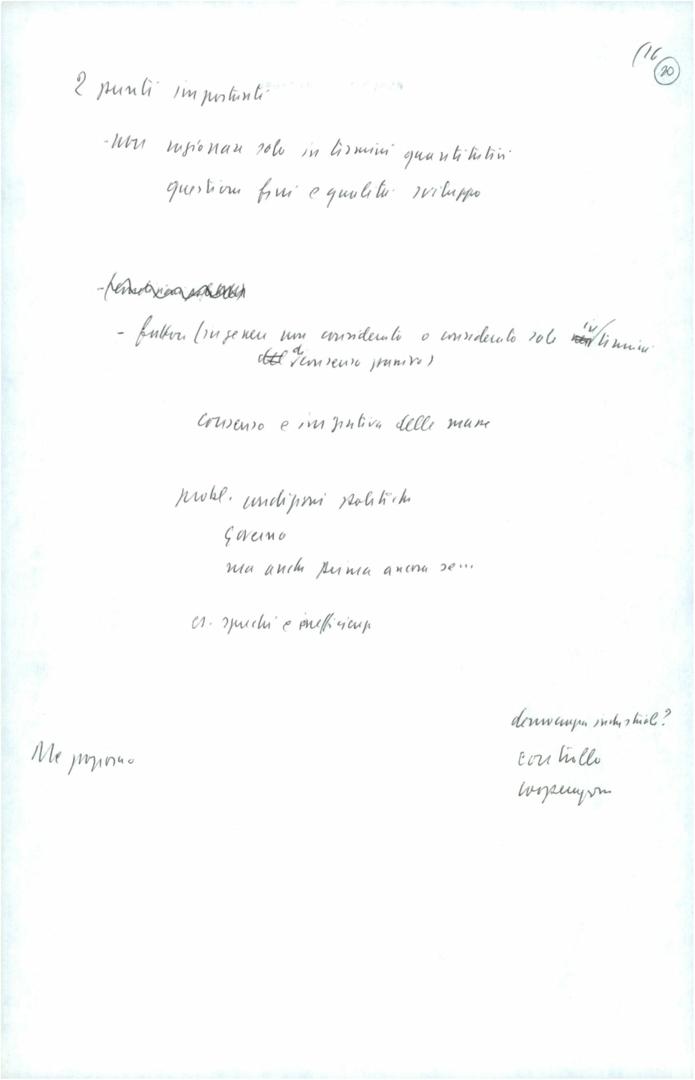 (16
20
2 punti importanti
- non ragionare solo in termini quantitativi
questioni fini e qualità sviluppo
- fattori (in genere non considerato o considerato solo in termini
di consenso passivo)
consenso e iniziativa delle masse
probl. condizioni politiche
Governo
ma anche prima ancora se...
es. sprechi e inefficienze
democrazia industriale?
controllo
cooperazione